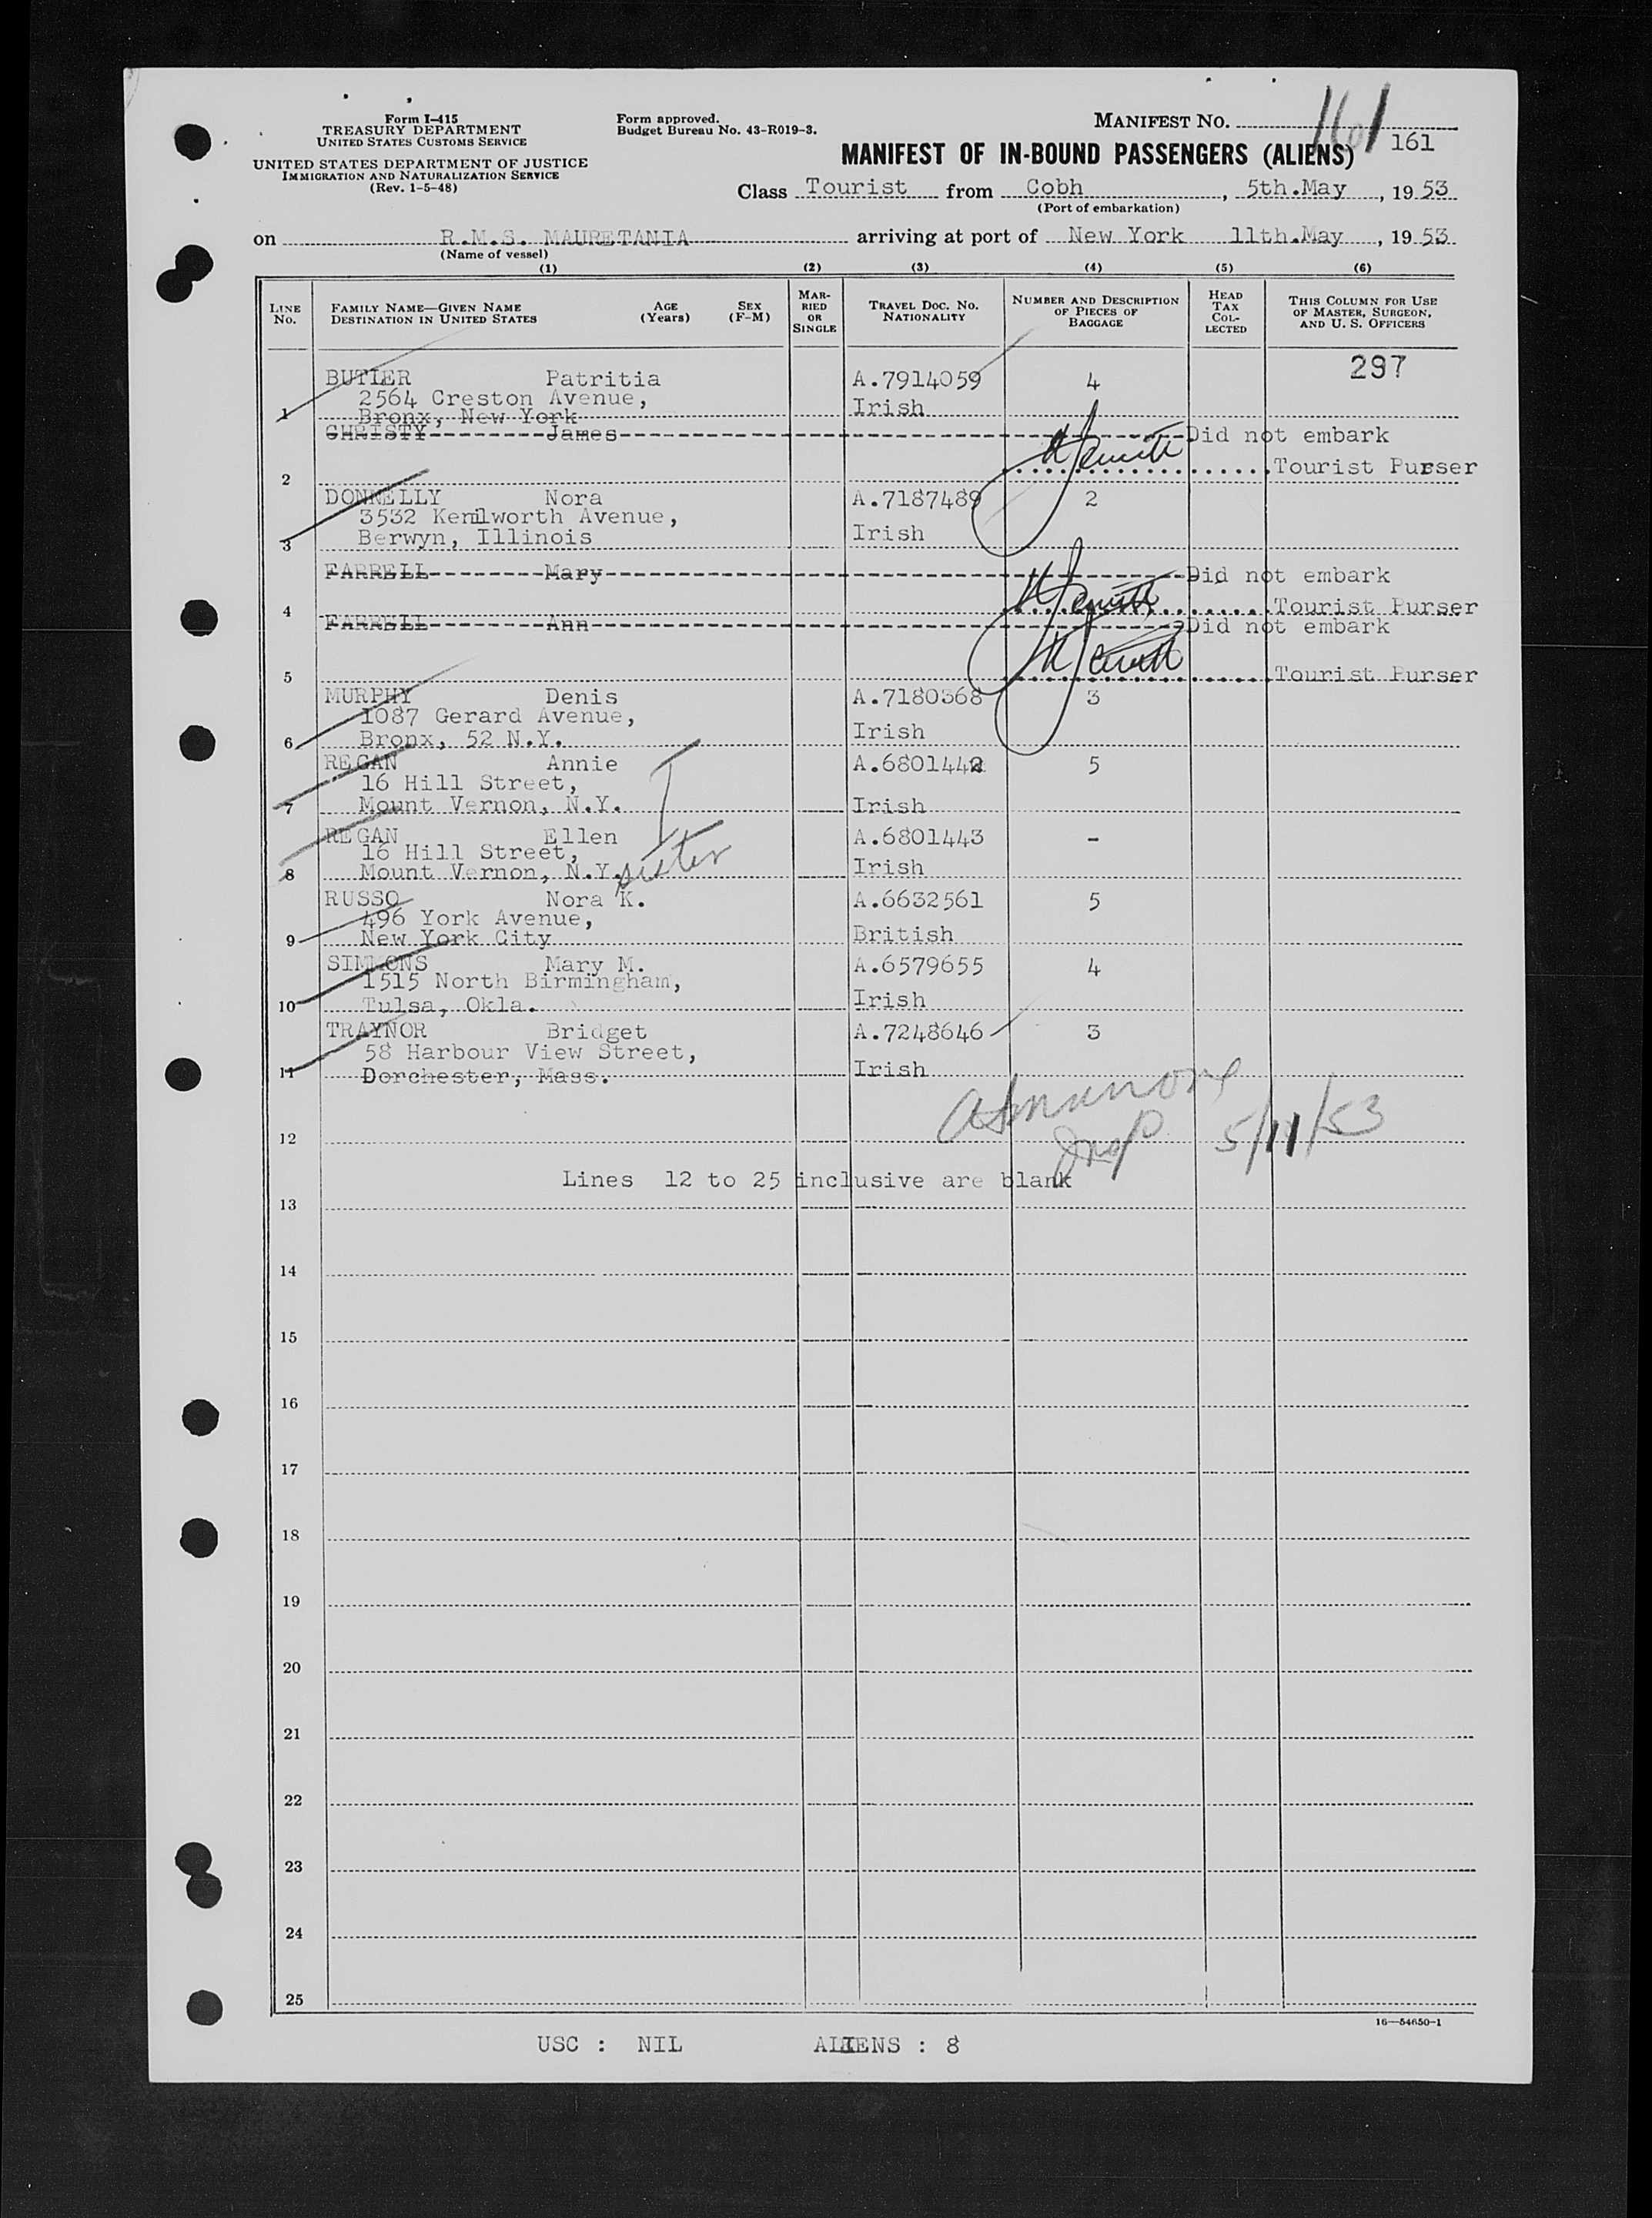 Form I-415
TREASURY DEPARTMENT
UNITED STATES CUSTOMS SERVICE
UNITED STATES DEPARTMENT OF JUSTICE
IMMIGRATION AND NATURALIZATION SERVICE
(Rev. 1-5-48)
Form approved.
Budget Bureau No. 43-R019-3.
MANIFEST NO. 161
161
MANIFEST OF IN-BOUND PASSENGERS (ALIENS)
Class Tourist from Cobh, 5th.May, 1953
(Port of embarkation)
on R.M.S. MAURETANIA arriving at port of New York 11th.May, 1953
(Name of vessel)
(1) (2) (3) (4) (5) (6)
LINE No. FAMILY NAME—GIVEN NAME DESTINATION IN UNITED STATES AGE (Years) SEX (F-M) MARRIED OR SINGLE TRAVEL DOC. NO. NATIONALITY NUMBER AND DESCRIPTION OF PIECES OF BAGGAGE HEAD TAX COLLECTED THIS COLUMN FOR USE OF MASTER, SURGEON, AND U. S. OFFICERS
297
BUTLER Patritia A.7914059 4
2564 Creston Avenue,
1 Bronx, New York Irish
CHRISTY James Did not embark
2 Tourist Purser
DONNELLY Nora A.7187489 2
3532 Kenilworth Avenue,
3 Berwyn, Illinois Irish
FARRELL Mary Did not embark
4 Tourist Purser
FARRELL Ann Did not embark
5 Tourist Purser
MURPHY Denis A.7180368 3
1087 Gerard Avenue,
6 Bronx, 52 N.Y. Irish
REGAN Annie A.6801442 5
16 Hill Street,
7 Mount Vernon, N.Y. Irish
REGAN Ellen A.6801443 -
16 Hill Street,
8 Mount Vernon, N.Y. sister Irish
RUSSO Nora K. A.6632561 5
496 York Avenue,
9 New York City British
SIMMONS Mary M. A.6579655 4
1515 North Birmingham,
10 Tulsa, Okla. Irish
TRAYNOR Bridget A.7248646 3
58 Harbour View Street,
11 Dorchester, Mass. Irish
12 5/11/53
Lines 12 to 25 inclusive are blank
13
14
15
16
17
18
19
20
21
22
23
24
25
16—54650-1
USC : NIL ALIENS : 8